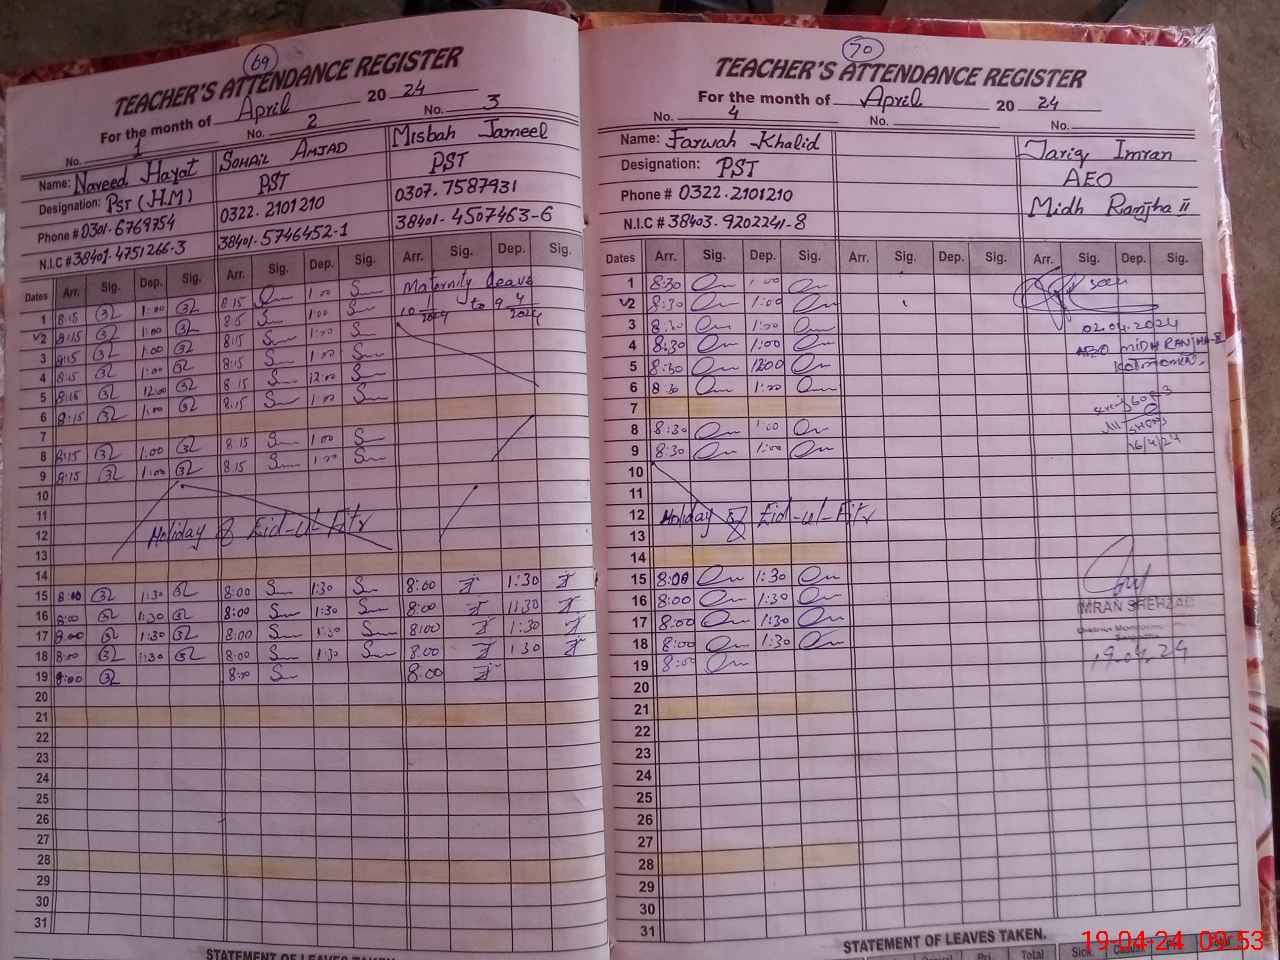 69
TEACHER'S ATTENDANCE REGISTER
For the month of April 2024
No. 1 No. 2 No. 3
Name: Naveed Hayat SOHAIL AMJAD Misbah Jameel
Designation: PST (H.M) PST PST
Phone # 0301-6769754 0322-2101210 0307-7587931
N.I.C # 38401-4751266-3 38401-5746452-1 38401-4507463-6
Dates Arr. Sig. Dep. Sig. Arr. Sig. Dep. Sig. Arr. Sig. Dep. Sig.
Maternity leave
to
1 8:15 1:00 8:15 1:00
2 8:15 1:00 8:15 1:00
3 8:15 1:00 8:15 1:00
4 8:15 1:00 8:15 1:00
5 8:15 12:00 8:15 12:00
6 8:15 1:00 8:15 1:00
7
8 8:15 1:00 8:15 1:00
9 8:15 1:00 8:15 1:00
10
11
12 Holiday of Eid-ul-Fitr
13
14
15 8:00 1:30 8:00 1:30 8:00 1:30
16 8:00 1:30 8:00 1:30 8:00 1:30
17 8:00 1:30 8:00 1:30 8:00 1:30
18 8:00 1:30 8:00 1:30 8:00 1:30
19 8:00 8:00 8:00
20
21
22
23
24
25
26
27
28
29
30
31
STATEMENT OF LEAVES TAKEN.
70
TEACHER'S ATTENDANCE REGISTER
For the month of April 2024
No. 4 No. No.
Name: Farwah Khalid Tariq Imran
Designation: PST AEO
Phone # 0322-2101210 Midh Ranjha II
N.I.C # 38403-9202241-8
Dates Arr. Sig. Dep. Sig. Arr. Sig. Dep. Sig. Arr. Sig. Dep. Sig.
1 8:30 1:00 seen
2 8:30 1:00
3 8:30 1:00 02.04.2024
4 8:30 1:00 AEO MIDH RANJHA-II
5 8:30 1200
6 8:30 1:00
7
8 8:30 1:00
9 8:30 1:00 16/4/24
10
11
12 Holiday of Eid-ul-Fitr
13
14
15 8:00 1:30
16 8:00 1:30 IMRAN SHEHZAD
17 8:00 1:30
18 8:00 1:30 19.04.24
19 8:00
20
21
22
23
24
25
26
27
28
29
30
31
STATEMENT OF LEAVES TAKEN.
Total Sick.
19-04-24 09:53